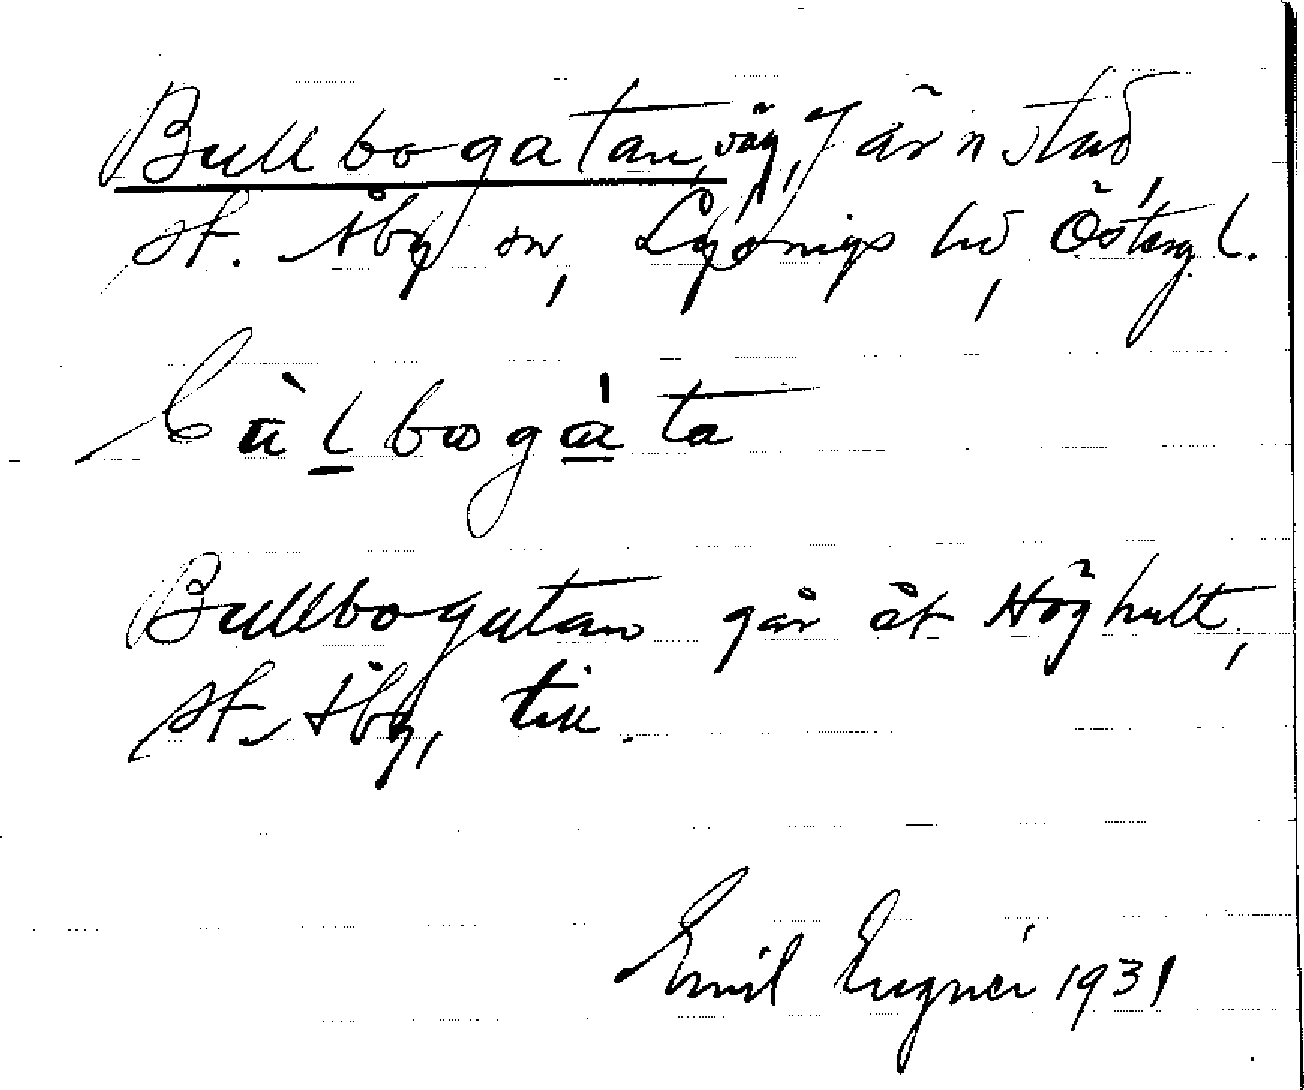 Bullbogatan, väg, Järnstad
St. Åby sn, Lysings hd, Östergl.
Bullbogatan går åt Höghult,
St. Åby, till.
Emil 1931